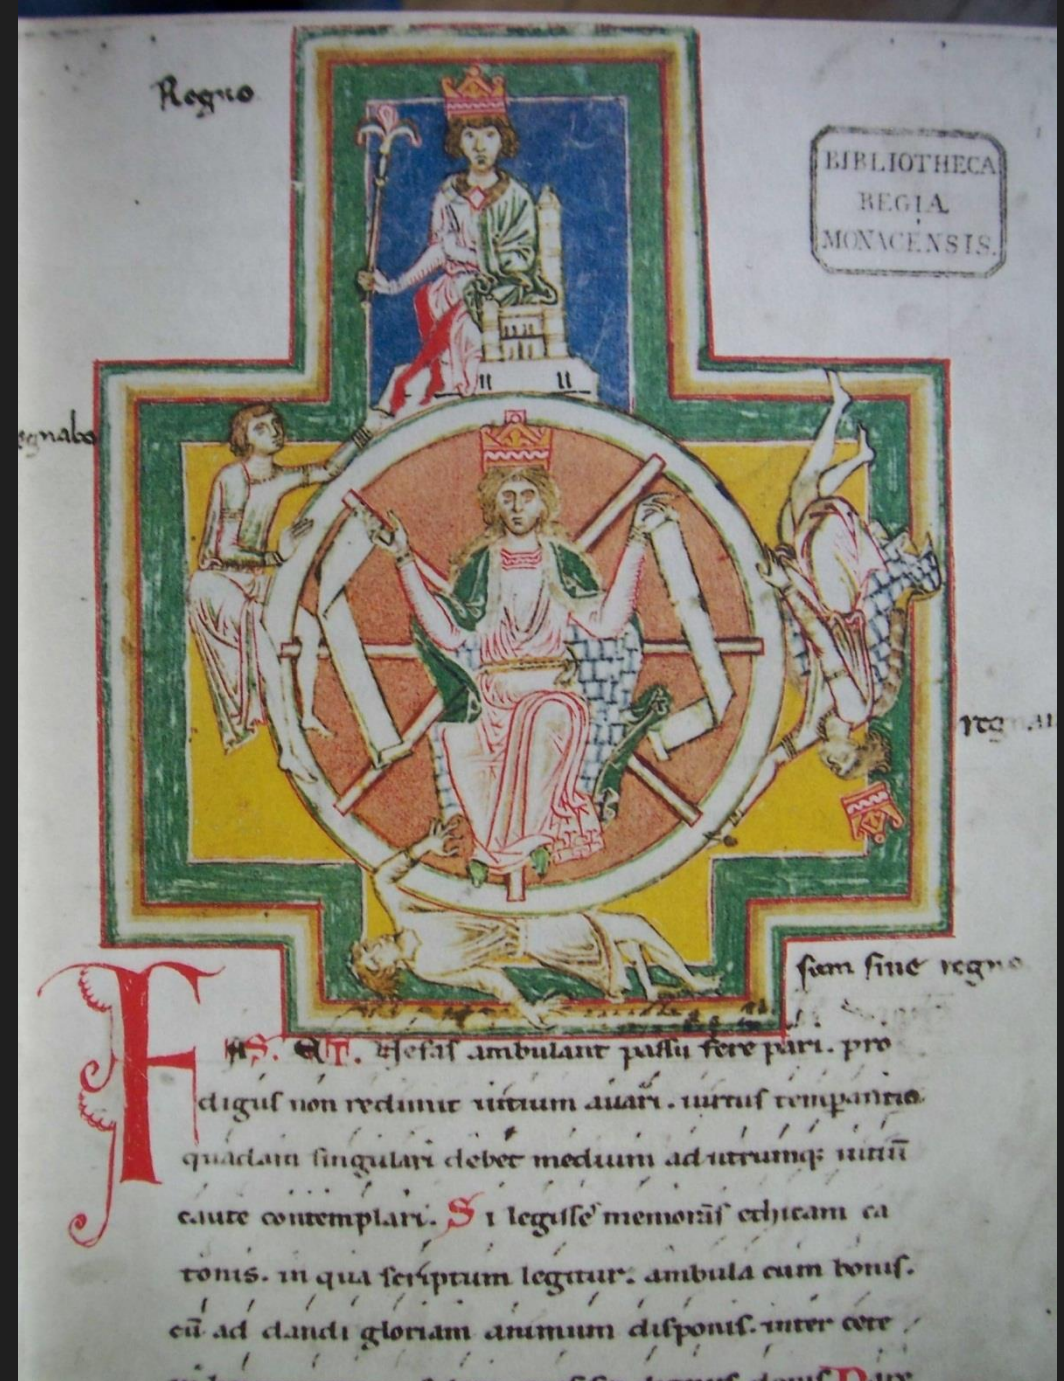 Regno
BIBLIOTHECA
REGIA
MONACENSIS.
egnabo
regnaui
sum sine regno
Fas & nefas ambulant passu fere pari. pro
digus non redimit uitium auari. uirtus temperantia
quadam singulari debet medium ad utrumq; uitiū
caute contemplari. Si legisse memoras ethicam ca
tonis. in qua scriptum legitur. ambula cum bonis.
cū ad dandi gloriam animum disponis. inter cete